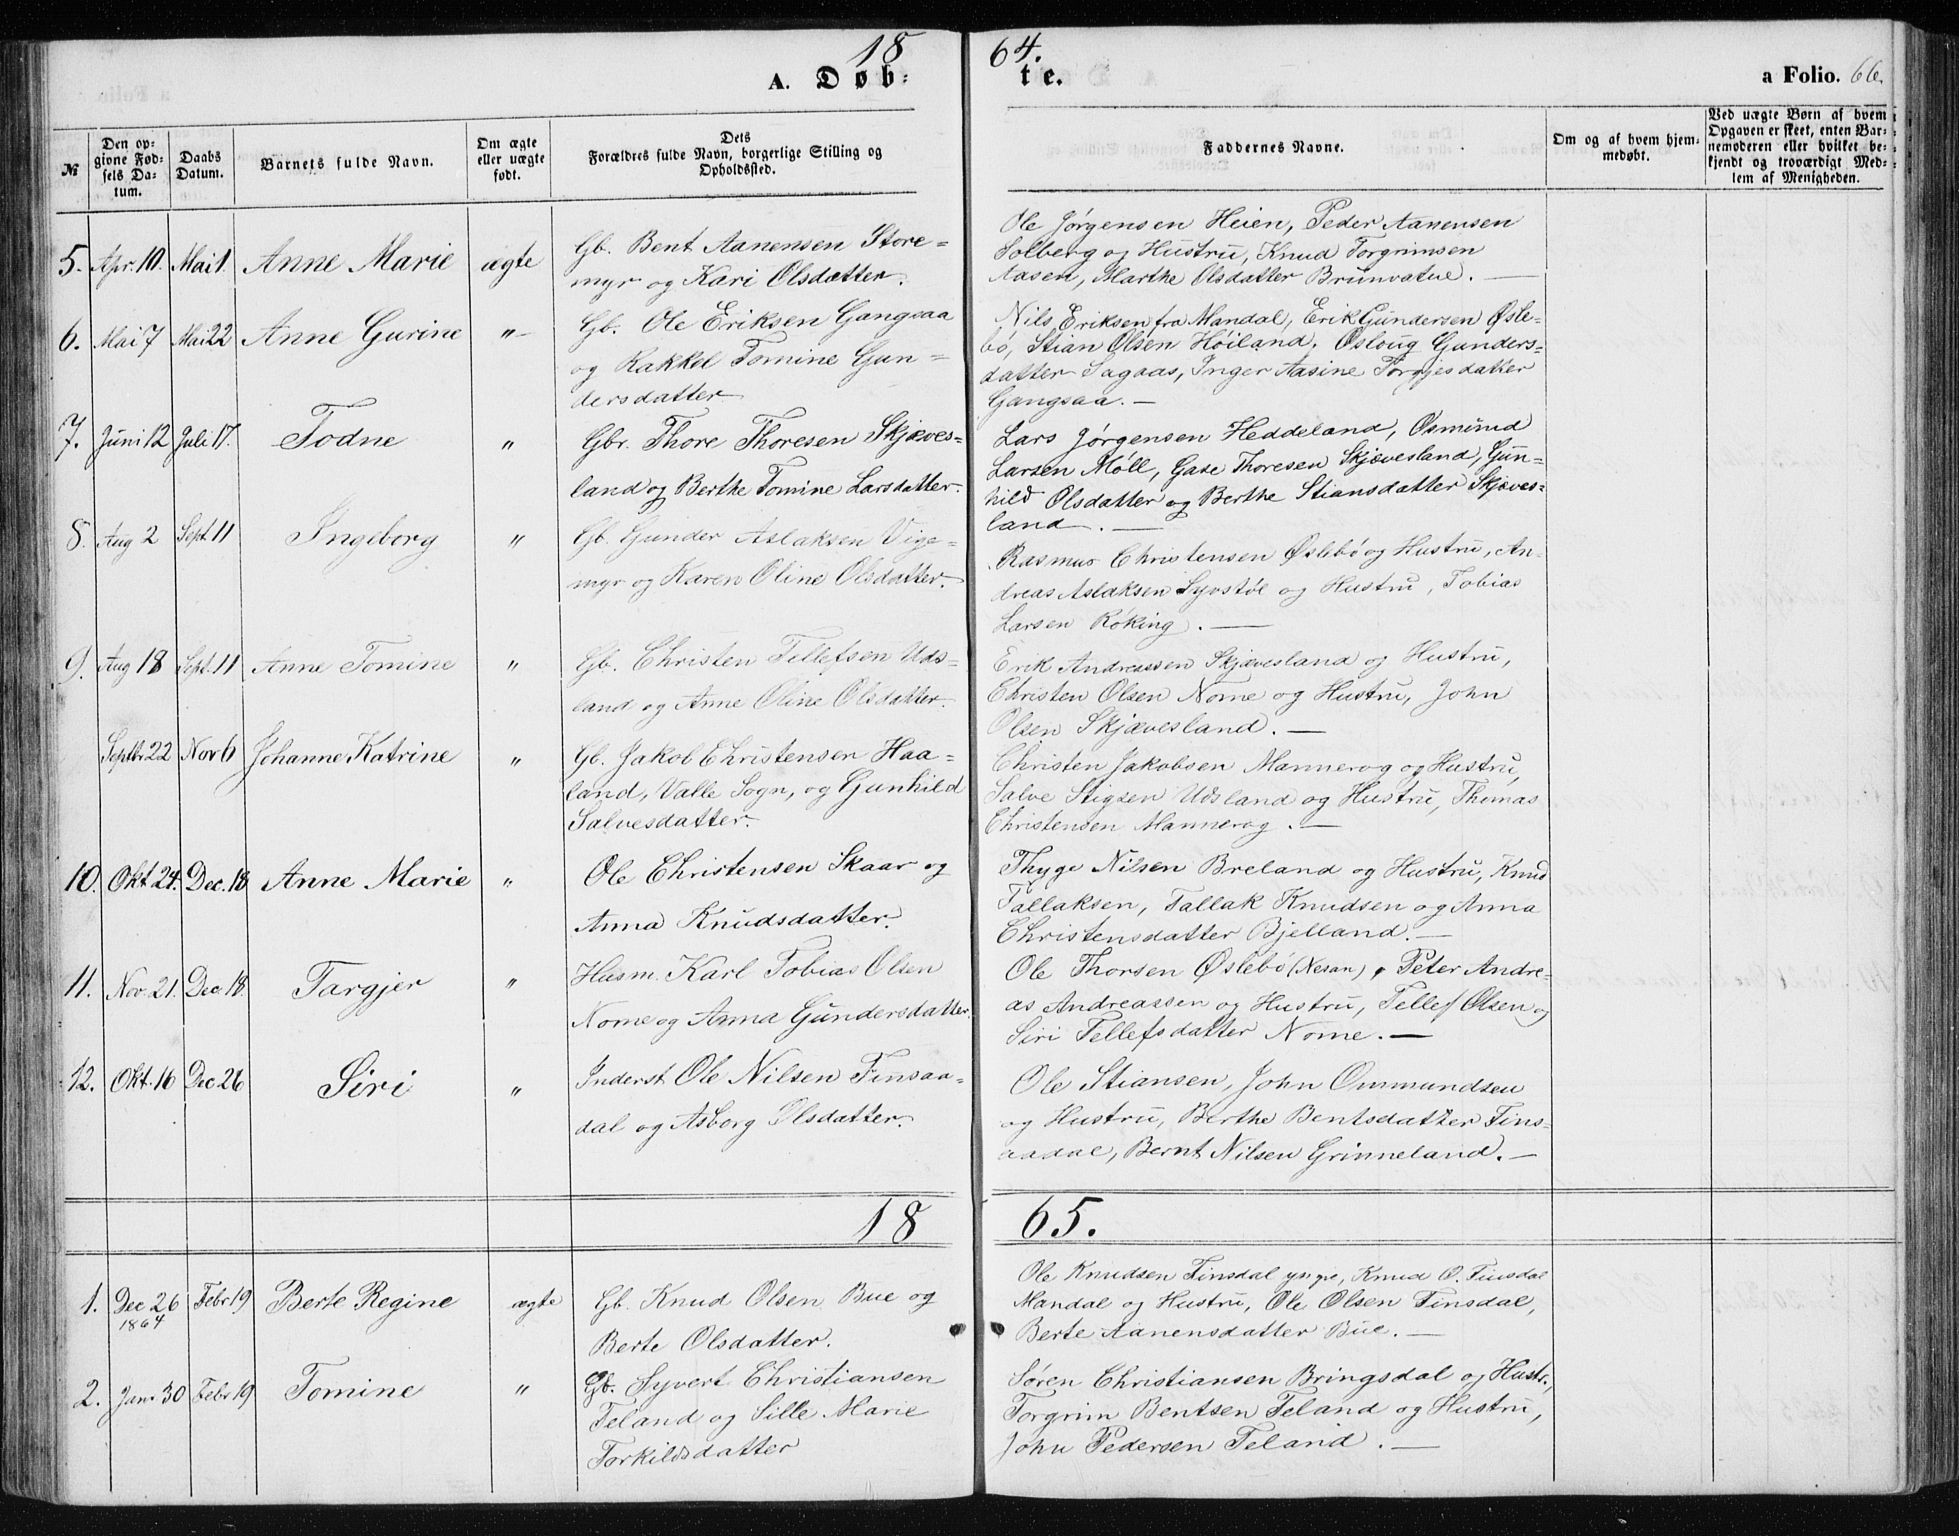 18 64.
A. Døb: te. a Folio. 66.
№
Den opgivne Fødsels Datum.
Daabs Datum.
Barnets fulde Navn.
Om ægte eller uægte født.
Dets Forældres fulde Navn, borgerlige Stilling og Opholdssted.
Faddernes Navne.
Om og af hvem hjemmedøbt.
Ved uægte Børn af hvem Opgaven er skeet, enten Barnemoderen eller hvilket bekjendt og troværdigt Medlem af Menigheden.
5. Apr. 10. Mai 1. Anne Marie ægte
Gb. Bent Aanensen Store-
myr og Kari Olsdatter.
Ole Jörgensen Heien, Peder Aanensen
Solberg og Hustru, Knud Torgrimsen
Aasen, Marthe Olsdatter Brunvatne. —
6. Mai 7 Mai 22 Anne Gurine "
Gb. Ole Eriksen Gangsaa
og Rakkel Tomine Gun-
dersdatter
Nils Eriksen fra Mandal, Erik Gundersen Øsle-
bö, Stian Olsen Höiland, Osloug Gunders-
datter Sagaas, Inger Aasine Torgjesdatter
Gangsaa. —
7. Juni 12 Juli 17. Todne "
Gbr. Thore Thoresen Skjæves-
land og Berthe Tomine Larsdatter.
Lars Jörgensen Heddeland, Osmund
Larsen Möll, Gase Thoresen Skjævesland, Gun-
hild Olsdatter og Berthe Stiansdatter Skjæves-
land. —
8. Aug 2 Sept. 11 Ingeborg "
Gb. Gunder Aslaksen Vige-
myr og Karen Oline Olsdatter.
Rasmus Christensen Øslebö og Hustru, An-
dreas Aslaksen Syvstöl og Hustru, Tobias
Larsen Röking. —
9. Aug 18 Sept. 11 Anne Tomine "
Gb. Christen Tellefsen Uds-
land og Anne Oline Olsdatter.
Erik Andreassen Skjævesland og Hustru,
Christen Olsen Nome og Hustru, John
Olsen Skjævesland. —
Septbr 22 Nov 6 Johanne Katrine "
Gb. Jakob Christensen Haa-
land, Valle Sogn, og Gunhild
Salvesdatter.
Christen Jakobsen Mannerog og Hustru,
Salve Stigsen Udsland og Hustru, Thomas
Christensen Mannerog. —
10. Okt 24. Dec. 18 Anne Marie "
Ole Christensen Skaar og
Anna Knudsdatter.
Thyge Nilsen Breland og Hustru, Knud
Tallaksen, Tallak Knudsen og Anna
Christensdatter Bjelland. —
11. Nov. 21. Dec. 18. Targjer "
Husm. Karl Tobias Olsen
Nome og Anna Gundersdatter.
Ole Thorsen Øslebö (Nesan), Peter Andre-
as Andreassen og Hustru, Tellef Olsen og
Siri Tellefsdatter Nome. —
12. Okt. 16 Dec 26 Siri "
Inderst Ole Nilsen Finsaa-
dal og Asborg Olsdatter.
Ole Stiansen, John Ommundsen
og Hustru, Berthe Bentsdatter Fins-
aadal, Bernt Nilsen Grinneland. —
18 65.
1. Dec 26 1864 Febr 19 Berte Regine ægte
Gb. Knud Olsen Bue og
Berte Olsdatter.
Ole Knudsen Finsdal yngre, Knud O. Finsdal
Mandal og Hustru, Ole Olsen Finsdal,
Berte Aanensdatter Bue. —
2. Jan. 30 Febr 19 Tomine "
Gb. Syvert Christiansen
Teland og Sille Marie
Torkildsdatter
Søren Christiansen Bringsdal og Hustr.,
Torgrim Bentsen Teland og Hustru,
John Pedersen Teland. —